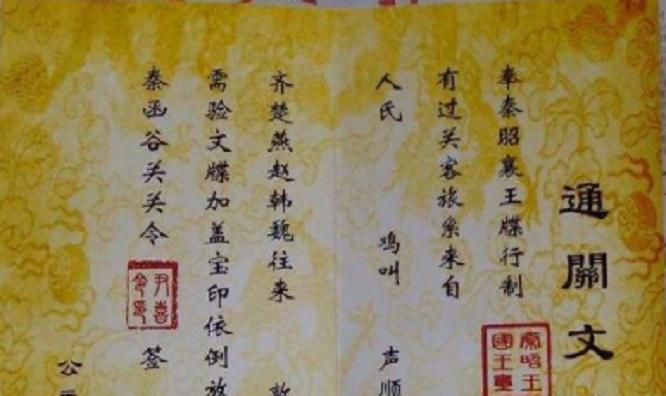 通關文
奉秦昭襄王牒行制
秦昭王
國王
有过关客旅系来自
人民 鸡叫 声顺
齐楚燕赵韩魏往来
需验文牒加盖宝印依倒放
秦函谷关关令 尹喜 签
公